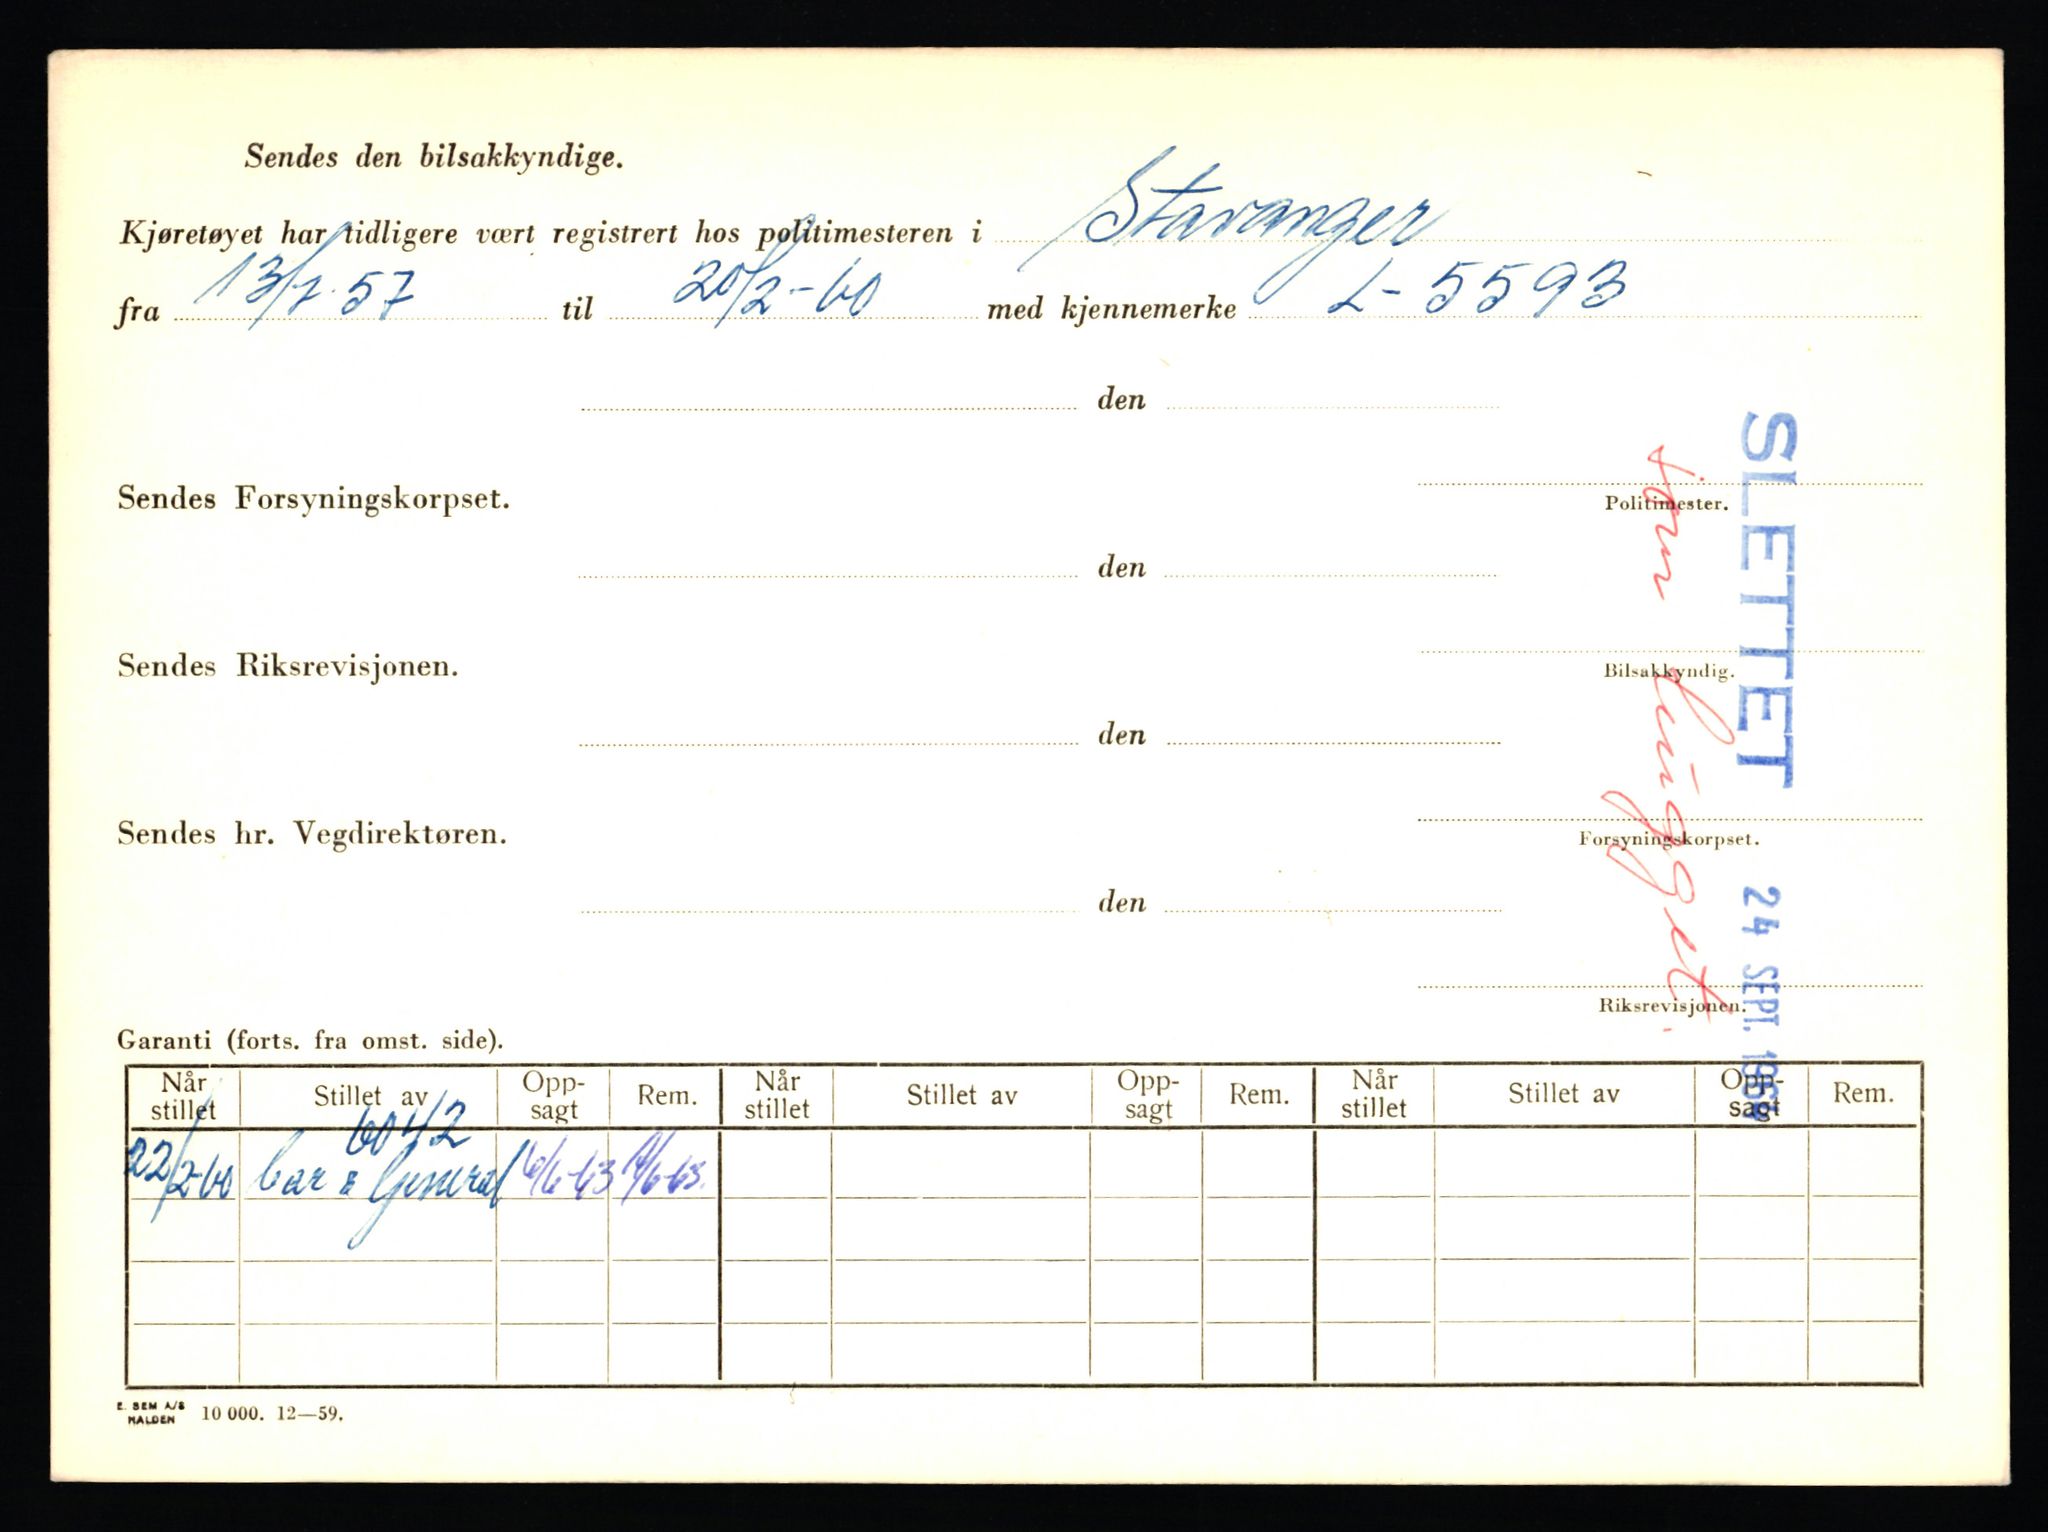 Sendes den bilsakkyndige.
Kjøretøyet har tidligere vært registrert hos politimesteren i Stavanger
fra 13/7-57 til 20/2-60 med kjennemerke L-5593
den
Sendes Forsyningskorpset.
Politimester.
den
Sendes Riksrevisjonen.
Bilsakkyndig.
den
Sendes hr. Vegdirektøren.
Forsyningskorpset.
den
Riksrevisjonen.
SLETTET
24 SEPT.
Garanti (forts. fra omst. side).
Når stillet Stillet av Opp-sagt Rem. Når stillet Stillet av Opp-sagt Rem. Når stillet Stillet av Opp-sagt Rem.
6042
22/2-60 Car & General 6/6-63
E. SEM A/S
HALDEN 10 000. 12—59.